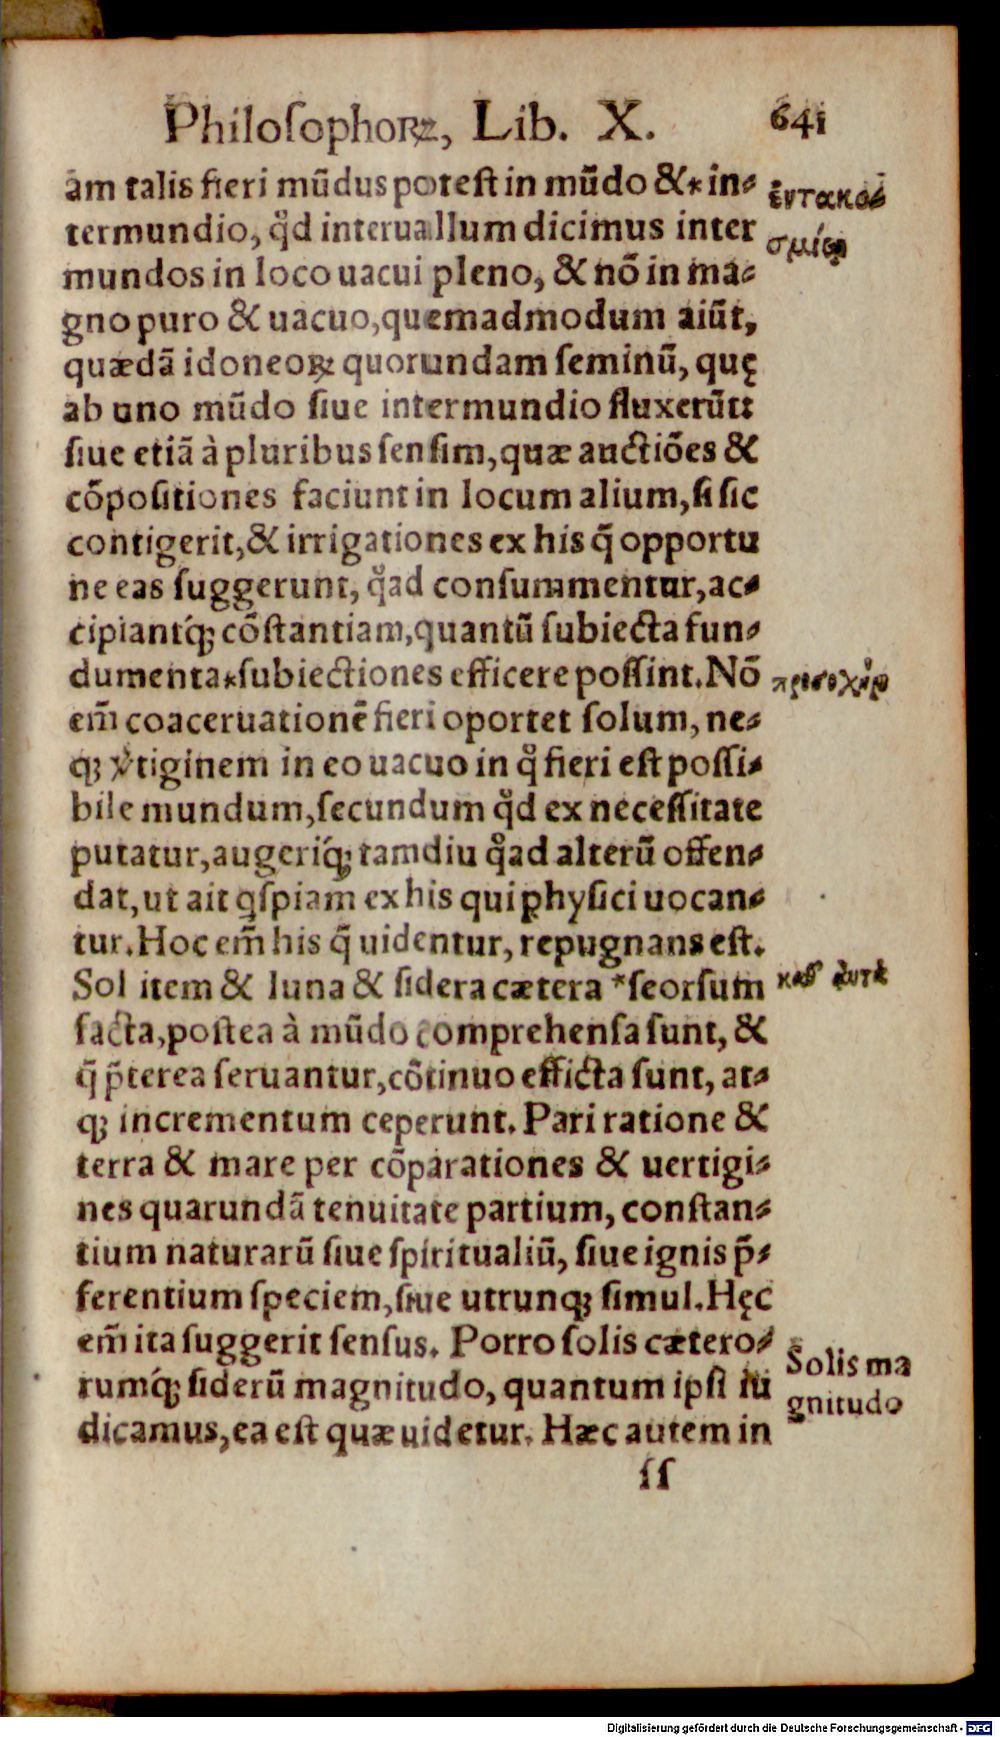 Philoſophoꝝ, Lib. X. 641
am talis fieri mũdus poteſt in mũdo &* in⸗
termundio, qͦd interuallum dicimus inter
mundos in loco uacui pleno, & nõ in ma⸗
gno puro & uacuo, quemadmodum aiũt,
quædã idoneoꝝ quorundam ſeminũ, quę
ab uno mũdo ſiue intermundio fluxerũt:
ſiue etiã à pluribus ſenſim, quæ auctiões &
cõpoſitiones faciunt in locum alium, ſi ſic
contigerit, & irrigationes ex his q̃ opportu
ne eas ſuggerunt, qͦad conſummentur, ac⸗
cipiantq́; cõſtantiam, quantũ ſubiecta fun⸗
dumenta*ſubiectiones efficere poſſint. Nõ
em̃ coaceruationẽ fieri oportet ſolum, ne⸗
q; v̓tiginem in eo uacuo in qͦ fieri eſt poſſi⸗
bile mundum, ſecundum qͦd ex neceſſitate
putatur, augeriq́; tamdiu qͦad alterũ offen⸗
dat, ut ait qſpiam ex his qui phyſici uocan⸗
tur. Hoc em̃ his q̃ uidentur, repugnans eſt.
Sol item & luna & ſidera cætera *ſeorſum
facta, poſtea à mũdo comprehenſa ſunt, &
q̃ p̃terea ſeruantur, cõtinuo efficta ſunt, at⸗
q; incrementum ceperunt. Pari ratione &
terra & mare per cõparationes & uertigi⸗
nes quarundã tenuitate partium, conſtan⸗
tium naturarũ ſiue ſpiritualiũ, ſiue ignis p̃⸗
ferentium ſpeciem, ſiue utrunq; ſimul. Hęc
em̃ ita ſuggerit ſenſus. Porro ſolis cætero⸗
rumq́; ſiderũ magnitudo, quantum ipſi iu
dicamus, ea eſt quæ uidetur. Hæc autem in
ſſ
Solis ma
gnitudo
Digitalisierung gefördert durch die Deutsche Forschungsgemeinschaft - DFG